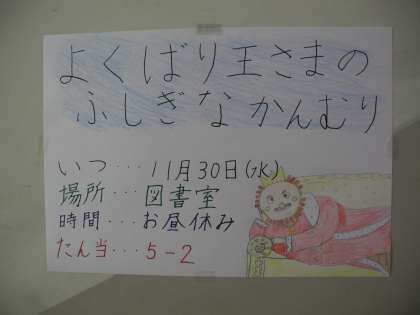 よくばり王さまの
ふしぎなかんむり
いつ・・・11月30日(水)
場所・・・図書室
時間・・・お昼休み
たん当・・・5-2